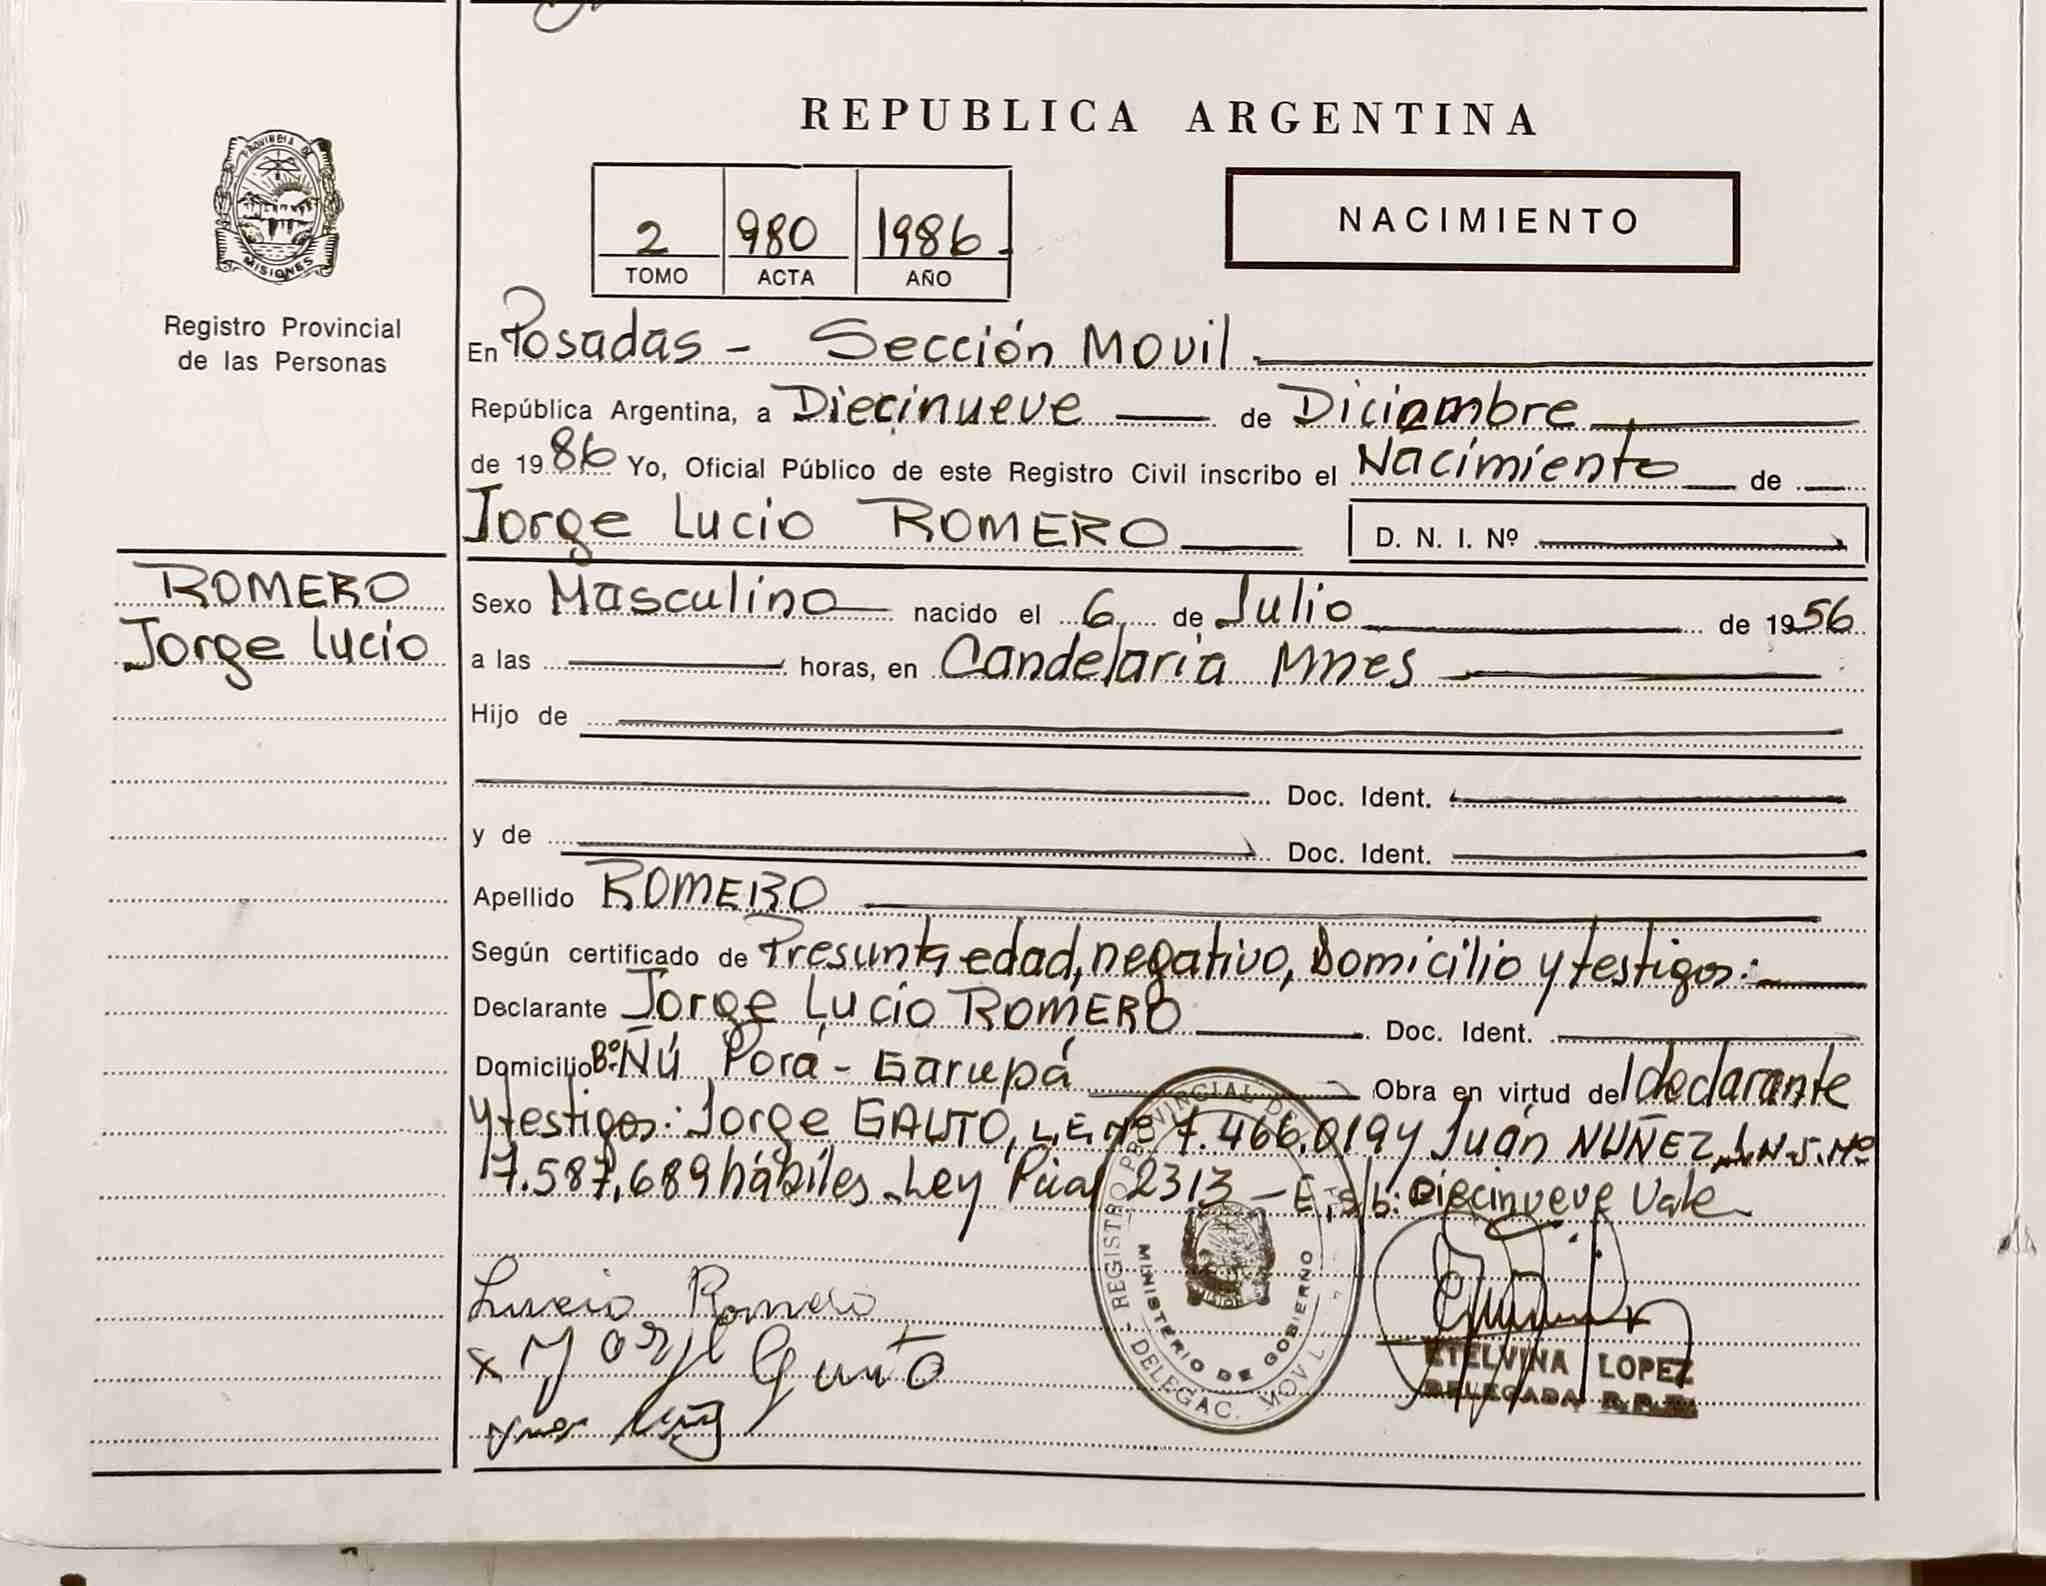 REPUBLICA ARGENTINA
PROVINCIA DE
MISIONES
Registro Provincial
de las Personas
2 980 1986
TOMO ACTA AÑO
NACIMIENTO
En Posadas - Sección Movil
República Argentina, a Diecinueve de Diciembre
de 1986 Yo, Oficial Público de este Registro Civil inscribo el Nacimiento de
Jorge Lucio ROMERO D. N. I. Nº
ROMERO
Jorge Lucio
Sexo Masculino nacido el 6 de Julio de 1956
a las horas, en Candelaria Mnes
Hijo de
Doc. Ident.
y de Doc. Ident.
Apellido ROMERO
Según certificado de Presunta edad, negativo, Domicilio y testigos:
Declarante Jorge Lucio ROMERO Doc. Ident.
Domicilio Bº Ñú Porá - Garupá Obra en virtud del declarante
y testigos: Jorge GAUTO, L.E. Nº 7.466.019 y Juán NUÑEZ Nº
7.587.689 hábiles Ley Pcial 2313 - E.s/b: Diecinueve Vale
Lucio Romero
x Jorge Gauto
REGISTRO PROVINCIAL DE
MINISTERIO DE GOBIERNO
DELEGAC. MOVIL
ETELVINA LOPEZ
DELEGADA R.P.P.